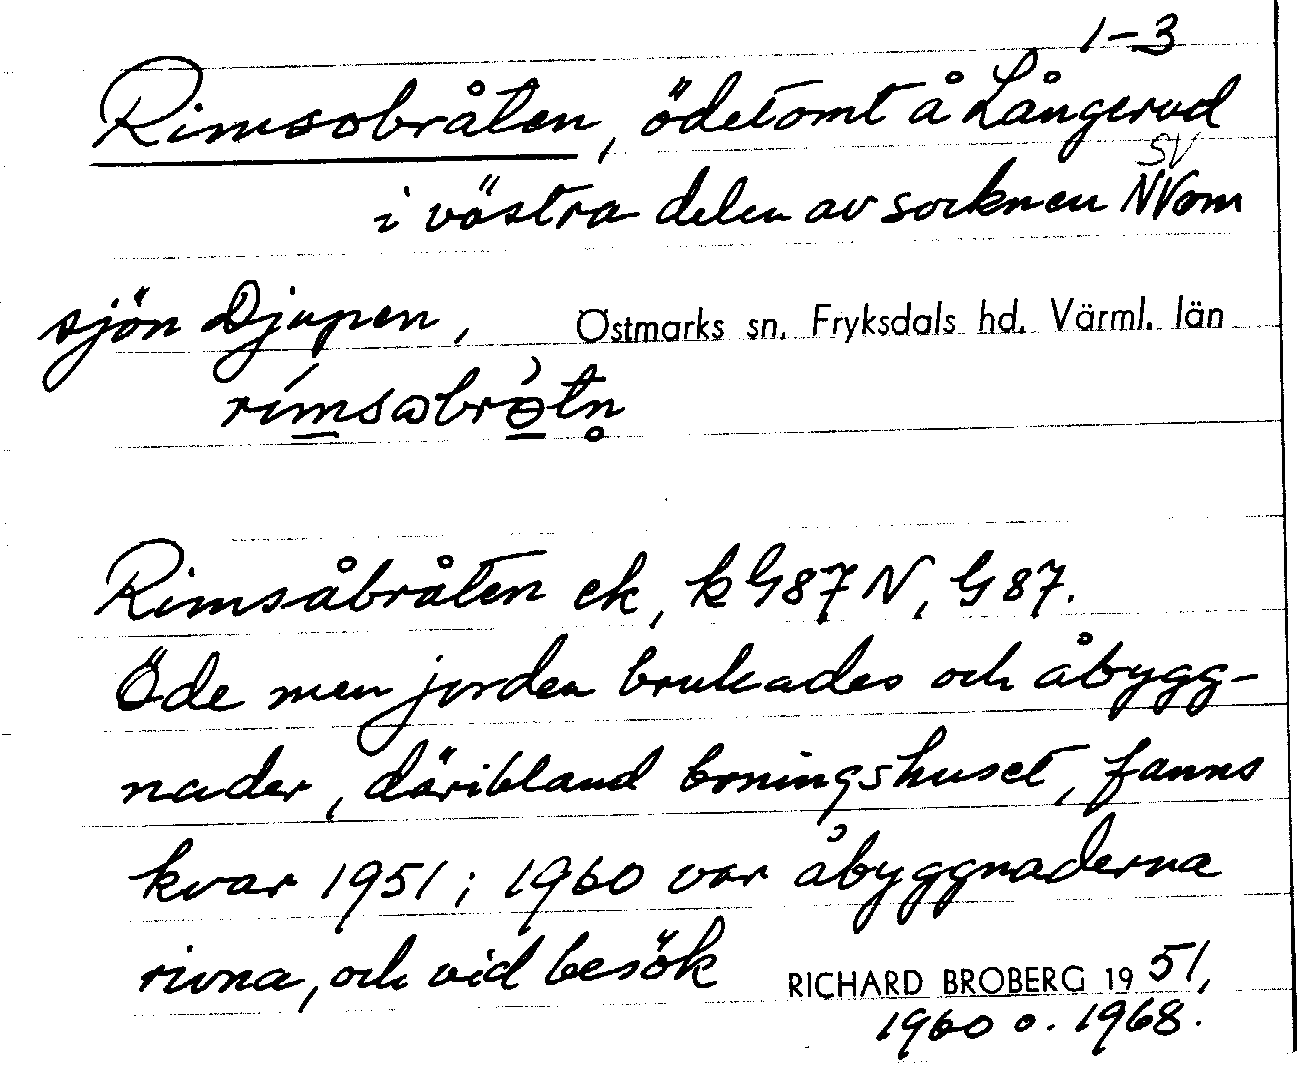 1-3
Rimsobråten, ödetomt å Långerud
SV
i västra delen av socknen NV om
sjön Djupen, Östmarks sn. Fryksdals hd. Värml. län
Rimsåbråten ek, k G87 N, G 87.
Öde men jorden brukades och åbygg-
nader, däribland boningshuset, fanns
kvar 1951; 1960 var åbyggnaderna
rivna, och vid besök RICHARD BROBERG 1951,
1960 o. 1968.